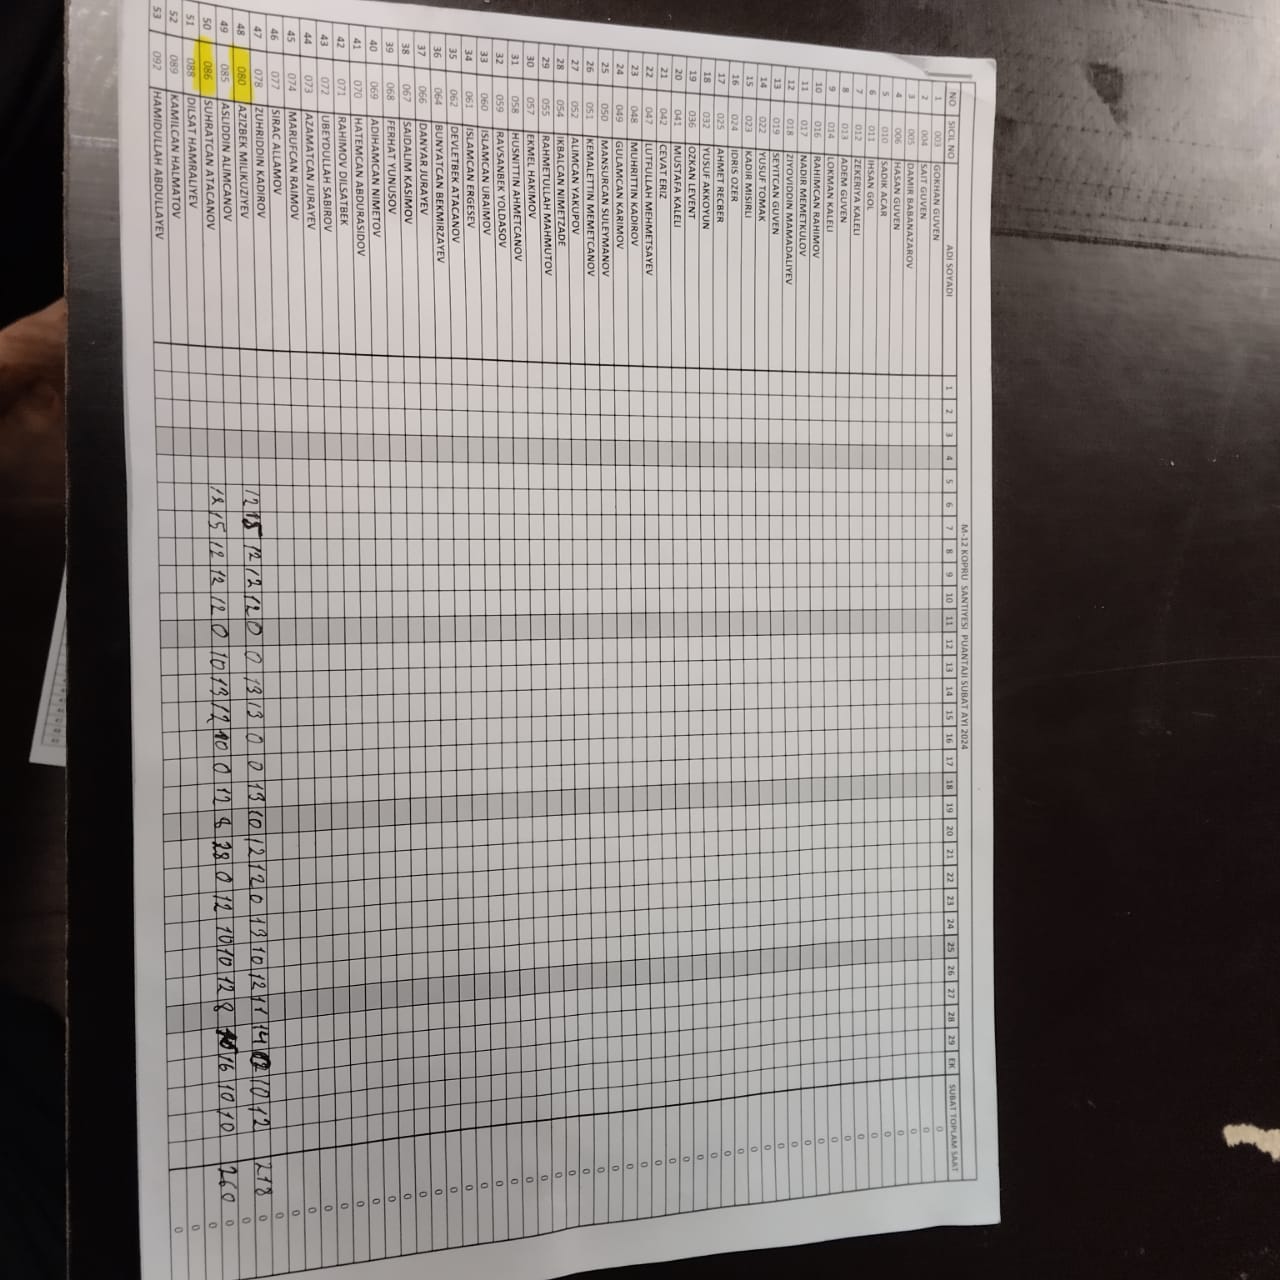 M-12 KOPRU SANTIYESI PUANTAJI SUBAT AYI 2024
NO SICIL NO ADI SOYADI 1 2 3 4 5 6 7 8 9 10 11 12 13 14 15 16 17 18 19 20 21 22 23 24 25 26 27 28 29 EK SUBAT TOPLAM SAAT
1 003 GOKHAN GUVEN 0
2 004 SAIT GUVEN 0
3 005 DAMIR BABANAZAROV 0
4 006 HASAN GUVEN 0
5 010 SADIK ACAR 0
6 011 IHSAN GOL 0
7 012 ZEKERIYA KALELI 0
8 013 ADEM GUVEN 0
9 014 LOKMAN KALELI 0
10 016 RAHIMCAN RAHIMOV 0
11 017 NADIR MEMETKULOV 0
12 018 ZIYOVIDDIN MAMADALIYEV 0
13 019 SEYITCAN GUVEN 0
14 022 YUSUF TOMAK 0
15 023 KADIR MISIRLI 0
16 024 IDRIS OZER 0
17 025 AHMET RECBER 0
18 032 YUSUF AKKOYUN 0
19 036 OZKAN LEVENT 0
20 041 MUSTAFA KALELI 0
21 042 CEVAT ERIZ 0
22 047 LUTFULLAH MEHMETSAYEV 0
23 048 MUHRITTIN KADIROV 0
24 049 GULAMCAN KARIMOV 0
25 050 MANSURCAN SULEYMANOV 0
26 051 KEMALETTIN MEMETCANOV 0
27 052 ALIMCAN YAKUPOV 0
28 054 IKBALCAN NIMETZADE 0
29 055 RAHMETULLAH MAHMUTOV 0
30 057 EKMEL HAKIMOV 0
31 058 HUSNITTIN AHMETCANOV 0
32 059 RAVSANBEK YOLDASOV 0
33 060 ISLAMCAN URAIMOV 0
34 061 ISLAMCAN ERGESEV 0
35 062 DEVLETBEK ATACANOV 0
36 064 BUNYATCAN BEKMIRZAYEV 0
37 066 DANYAR JURAYEV 0
38 067 SAIDALIM KASIMOV 0
39 068 FERHAT YUNUSOV 0
40 069 ADIHAMCAN NIMETOV 0
41 070 HATEMCAN ABDURASIDOV 0
42 071 RAHIMOV DILSATBEK 0
43 072 UBEYDULLAH SABIROV 0
44 073 AZAMATCAN JURAYEV 0
45 074 MARUFCAN RAIMOV 0
46 077 SIRAC ALLAMOV 0
47 078 ZUHRIDDIN KADIROV 0
48 080 AZIZBEK MILIKUZIYEV 12 15 12 12 12 0 0 13 13 0 0 13 10 12 12 0 13 10 12 11 14 10 12 218 0
49 085 ASLIDDIN ALIMCANOV 0
50 086 SUHRATCAN ATACANOV 12 15 12 12 12 0 10 13 12 10 0 12 8 28 0 12 10 10 12 8 16 10 10 260 0
51 088 DILSAT HAMRALIYEV 0
52 089 KAMILCAN HALMATOV 0
53 092 HAMIDULLAH ABDULLAYEV 0